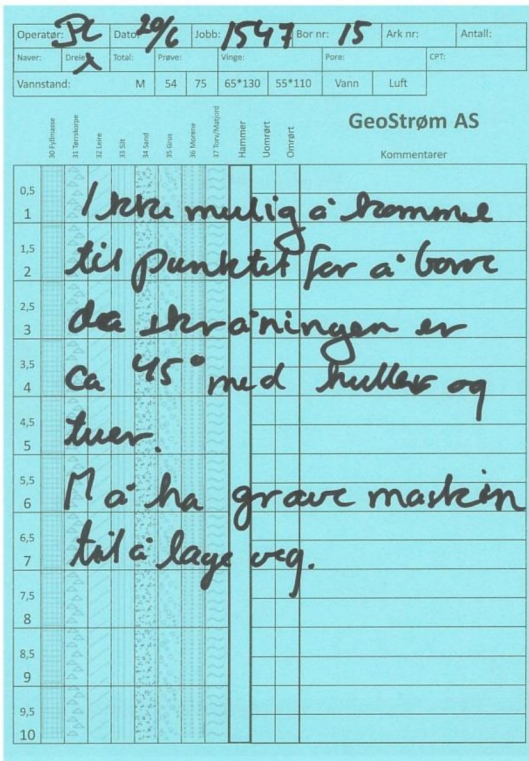 Operatør: PL Dato: 20/6 Jobb: 1547 Bor nr: 15 Ark nr: Antall:
Naver: Dreie: X Total: Prøve: Vinge: Pore: CPT:
Vannstand: M 54 75 65*130 55*110 Vann Luft
30 Fyllmasse 31 Tørrskorpe 32 Leire 33 Silt 34 Sand 35 Grus 36 Morene 37 Torv/Matjord Hammer Uomrørt Omrørt
GeoStrøm AS
Kommentarer
0,5
1
1,5
2
2,5
3
3,5
4
4,5
5
5,5
6
6,5
7
7,5
8
8,5
9
9,5
10
Ikke mulig å komme
til punktet for å bore
da skråningen er
ca 45° med huller og
tuer.
Må ha grave maskin
til å lage veg.